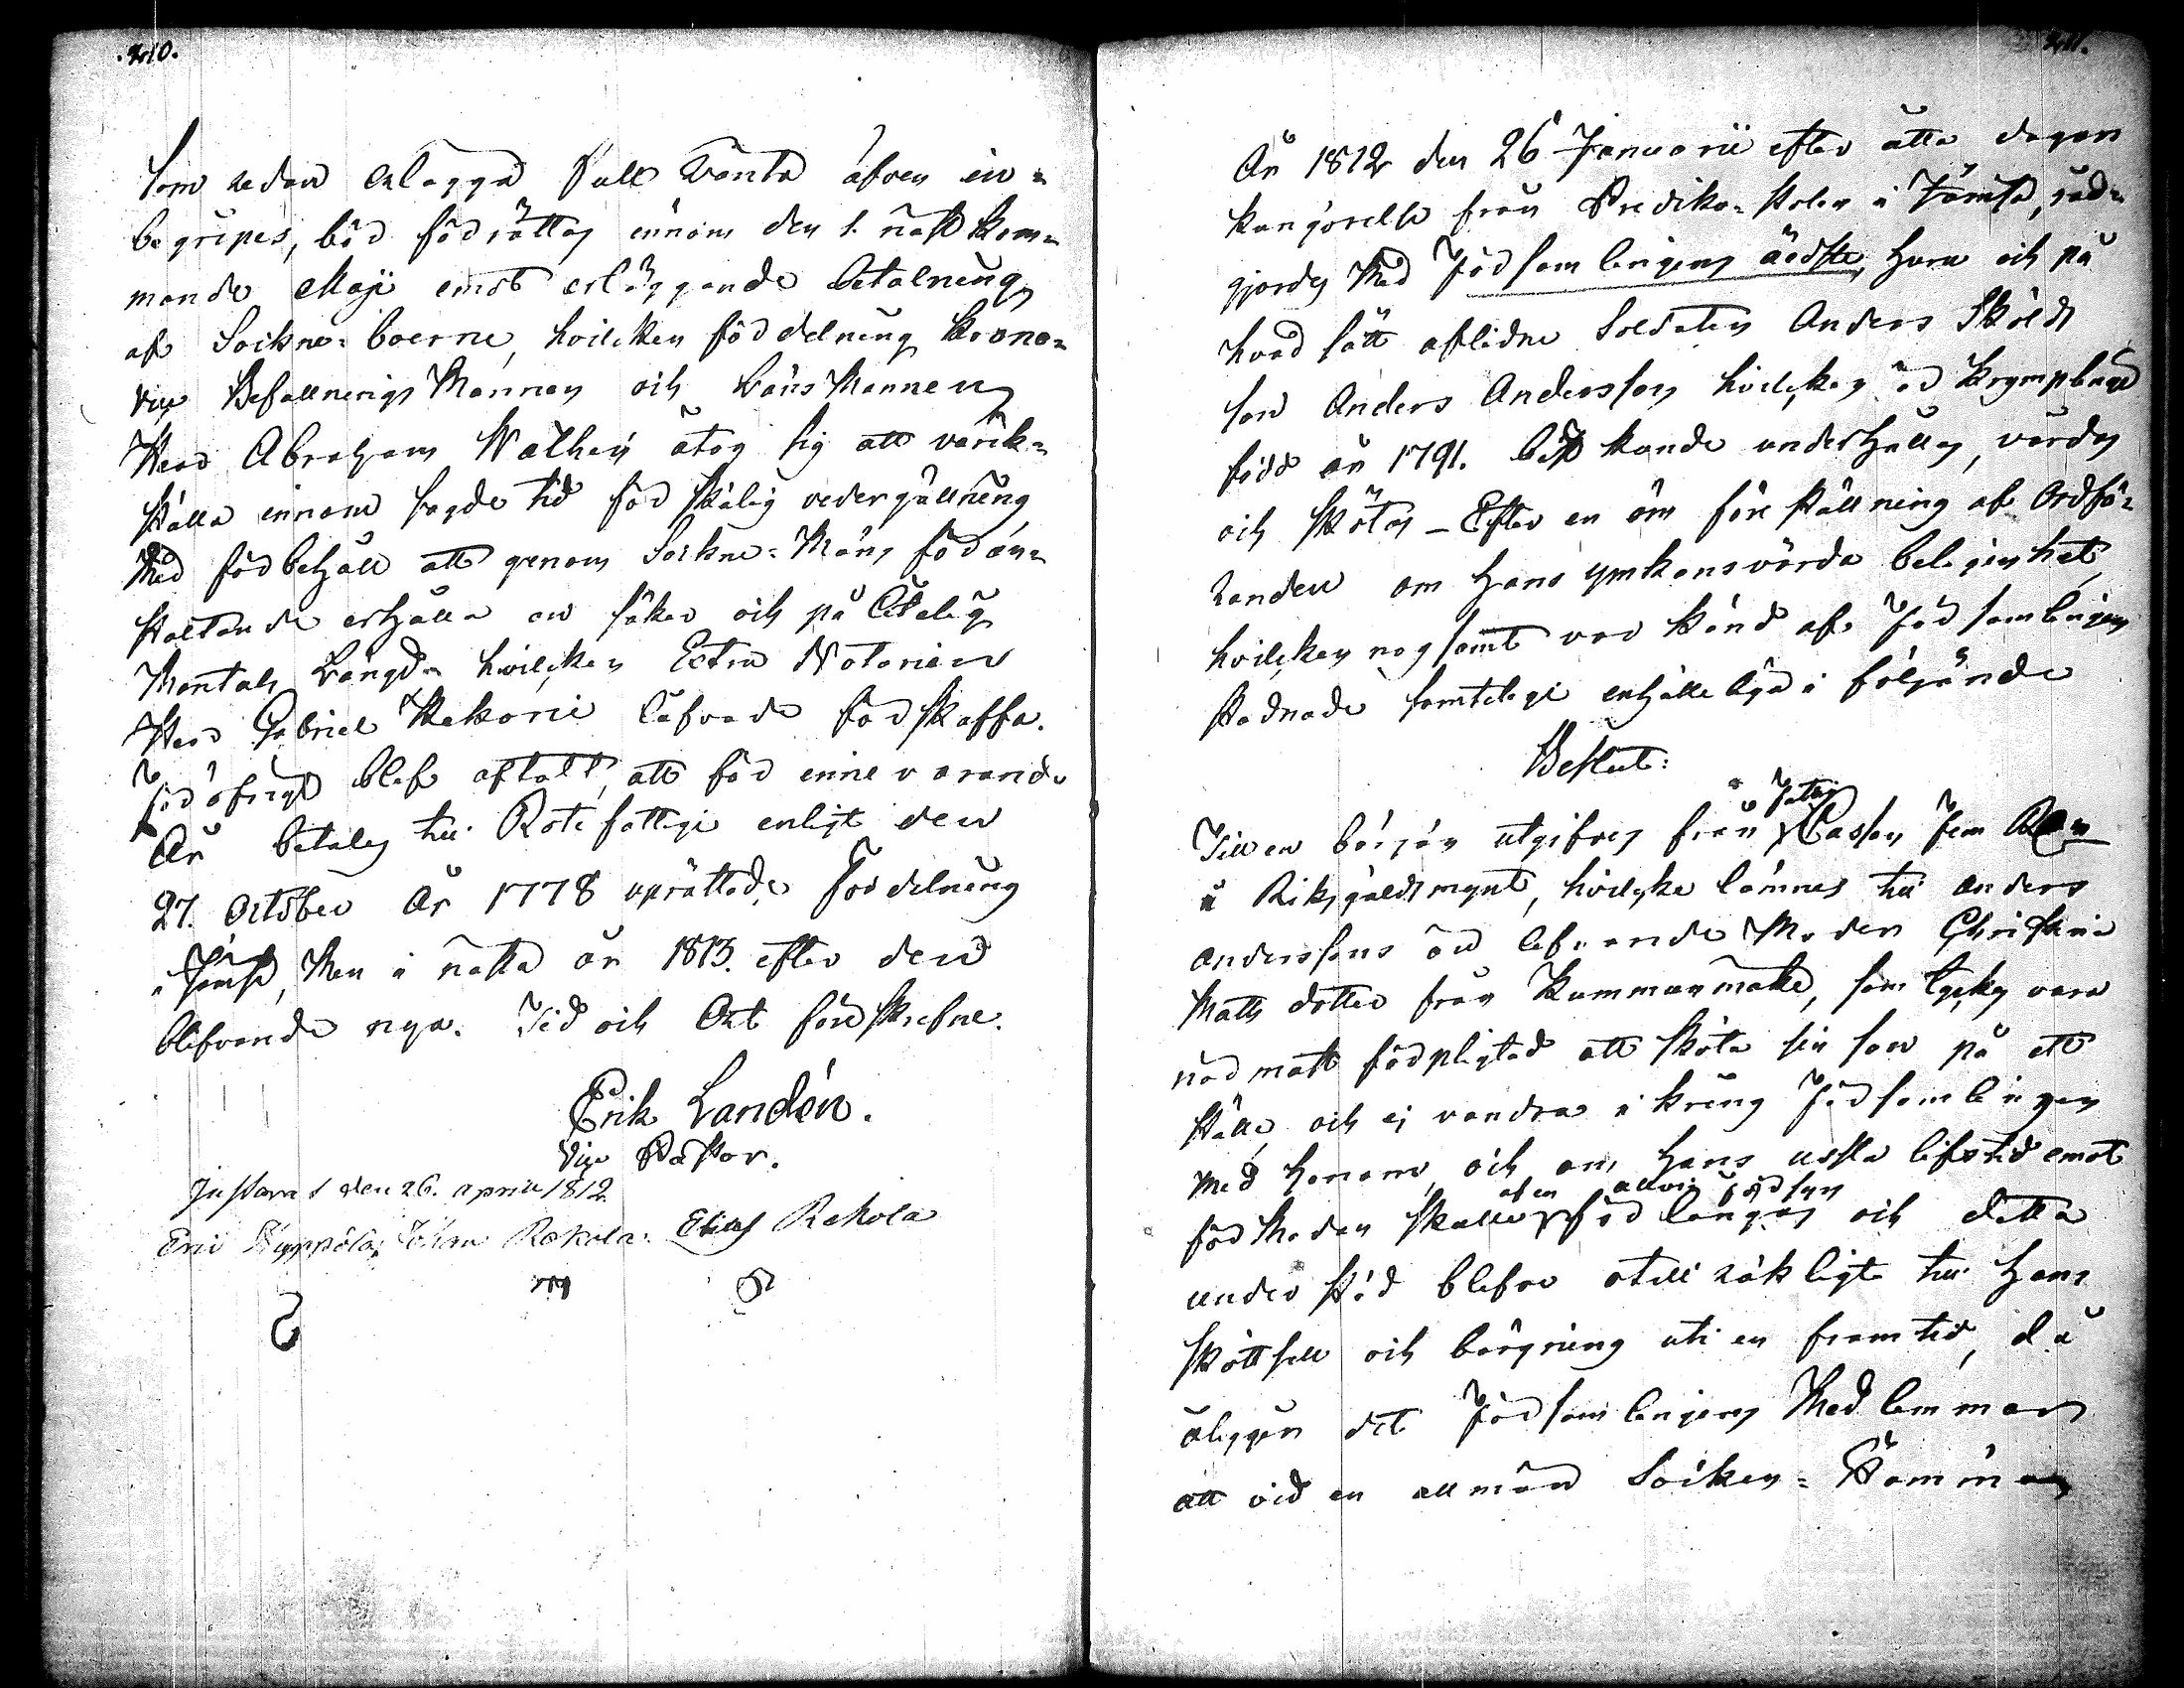 210.
Som redan erlaggd full ränta äfven in=
begripes, bör förrättas innom den 1. näst kom=
mande Maji emot erläggande betalning
af Sockne=boerne, hvilcken fördelning Krono=
vice Befallnings Mannen och Läns Mannen
Herr Abraham Wathén åtog sig att värck=
ställa innom sagde tid för skälig vedergällning
Med förbehåll att genom Sockne=Mäns föran=
staltande erhålla en säker och på
Mantals Längd hvilcken Extra Notarien
Herr Gabriel låfvade förskaffa.
För öfrigt blef aftalt, att för innevarande
År betales till Rote fattige enligt den
27. October År 1778 uprättade Fördelning
i Jämsä, Men i nästa år 1813. efter den
blifvande nya. Tid och Ort förr skrefne.
Erik Landén.
Vice Pastor.
Justerat den 26. april 1812
Eric Johan Rekola. Elias Rekola
211.
År 1812 den 26 Januarii efter åtta dagars
kungörelse från Prediko=stolen i Jämsä, råd=
gjordes Med Församlingens äldste, huru och på
hvad sätt aflidne Soldaten Anders Skölds
son Anders Andersson hvilcken är krympling
född år 1791. bäst kunde underhållas, vårdas
och skötas – Efter en öm före ställning af Ordfö=
randen om hans ymkansvärda belägenhet,
hvilcken nogsamt var känd af Församlingen
stadnade samtelige enhälleligen i följande
Beslut:
Till en början utgifves från Fattig Cassan Fem
i Riksgäldsmynt, hvilcke lämnes till Anders
Anderssons än lefvande Moder Christina
Matts dotter från Kummunmäki, som tyckes vara
närmast förpligtad att sköta sin son på ett
ställe och ej vandra i kring Församlingen
Med honom, och om hans usla lifstid emot
förmodan skulle af en allvis Försyn förlängas och detta
under stöd blefve otillräckligt till hans
skötsell och bärgning uti en framtid, då
åligger det Församlingens Medlemmar
att vid en allmän Socken=Stämma